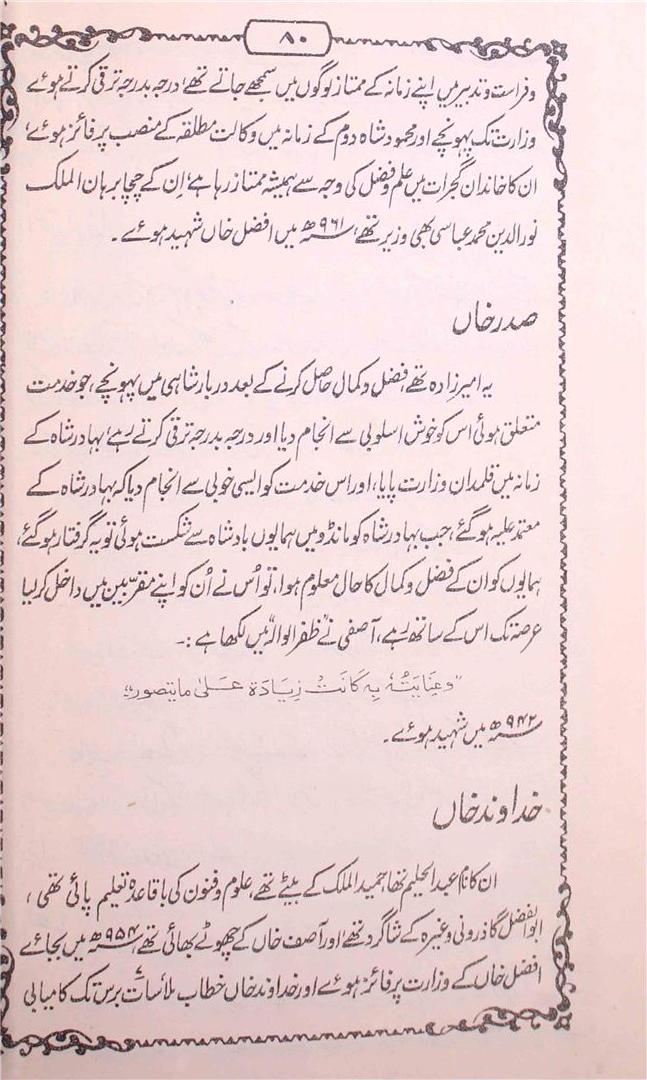 ۸۰
وفراست و تدبیر میں اپنے زمانہ کے ممتاز لوگوں میں سمجھے جاتے تھے، درجہ بدرجہ ترقی کرتے ہوئے
وزارت تک پہونچے اور محمود شاہ دوم کے زمانہ میں وکالت مطلقہ کے منصب پر فائز ہوئے،
ان کا خاندان گجرات میں علم و فضل کی وجہ سے ہمیشہ ممتاز رہا ہے، اِن کے چچا برہان الملک
نورالدین محمد عباسی بھی وزیر تھے، ۹۶۱ھ میں افضل خاں شہید ہوئے۔
صدر خاں
یہ امیرزادہ تھے، فضل و کمال حاصل کرنے کے بعد دربار شاہی میں پہونچے، جو خدمت
متعلق ہوئی اس کو خوش اسلوبی سے انجام دیا اور درجہ بدرجہ ترقی کرتے رہے، بہادر شاہ کے
زمانہ میں قلمدان وزارت پایا، اور اس خدمت کو ایسی خوبی سے انجام دیا کہ بہادر شاہ کے
معتمد علیہ ہو گئے، جب بہادر شاہ کو مانڈو میں ہمایوں بادشاہ سے شکست ہوئی تو یہ گرفتار ہو گئے،
ہمایوں کو ان کے فضل و کمال کا حال معلوم ہوا، تو اُس نے اُن کو اپنے مقربین میں داخل کر لیا
عرصہ تک اس کے ساتھ رہے، آصفی نے ظفر الوالہ میں لکھا ہے :۔
"وعِنَایَتُہٗ بِہٖ کَانَتْ زِیَادَۃ عَلیٰ مایتصور"؛
۹۴۲ھ میں شہید ہوئے۔
خداوند خاں
ان کا نام عبدالحلیم تھا، حمید الملک کے بیٹے تھے، علوم و فنون کی باقاعدہ تعلیم پائی تھی،
ابوالفضل گاذرونی وغیرہ کے شاگرد تھے، اور آصف خاں کے چھوٹے بھائی تھے، ۹۵۴ھ میں بجائے
افضل خاں کے وزارت پر فائز ہوئے اور خداوند خاں خطاب ملا، سات برس تک کامیابی